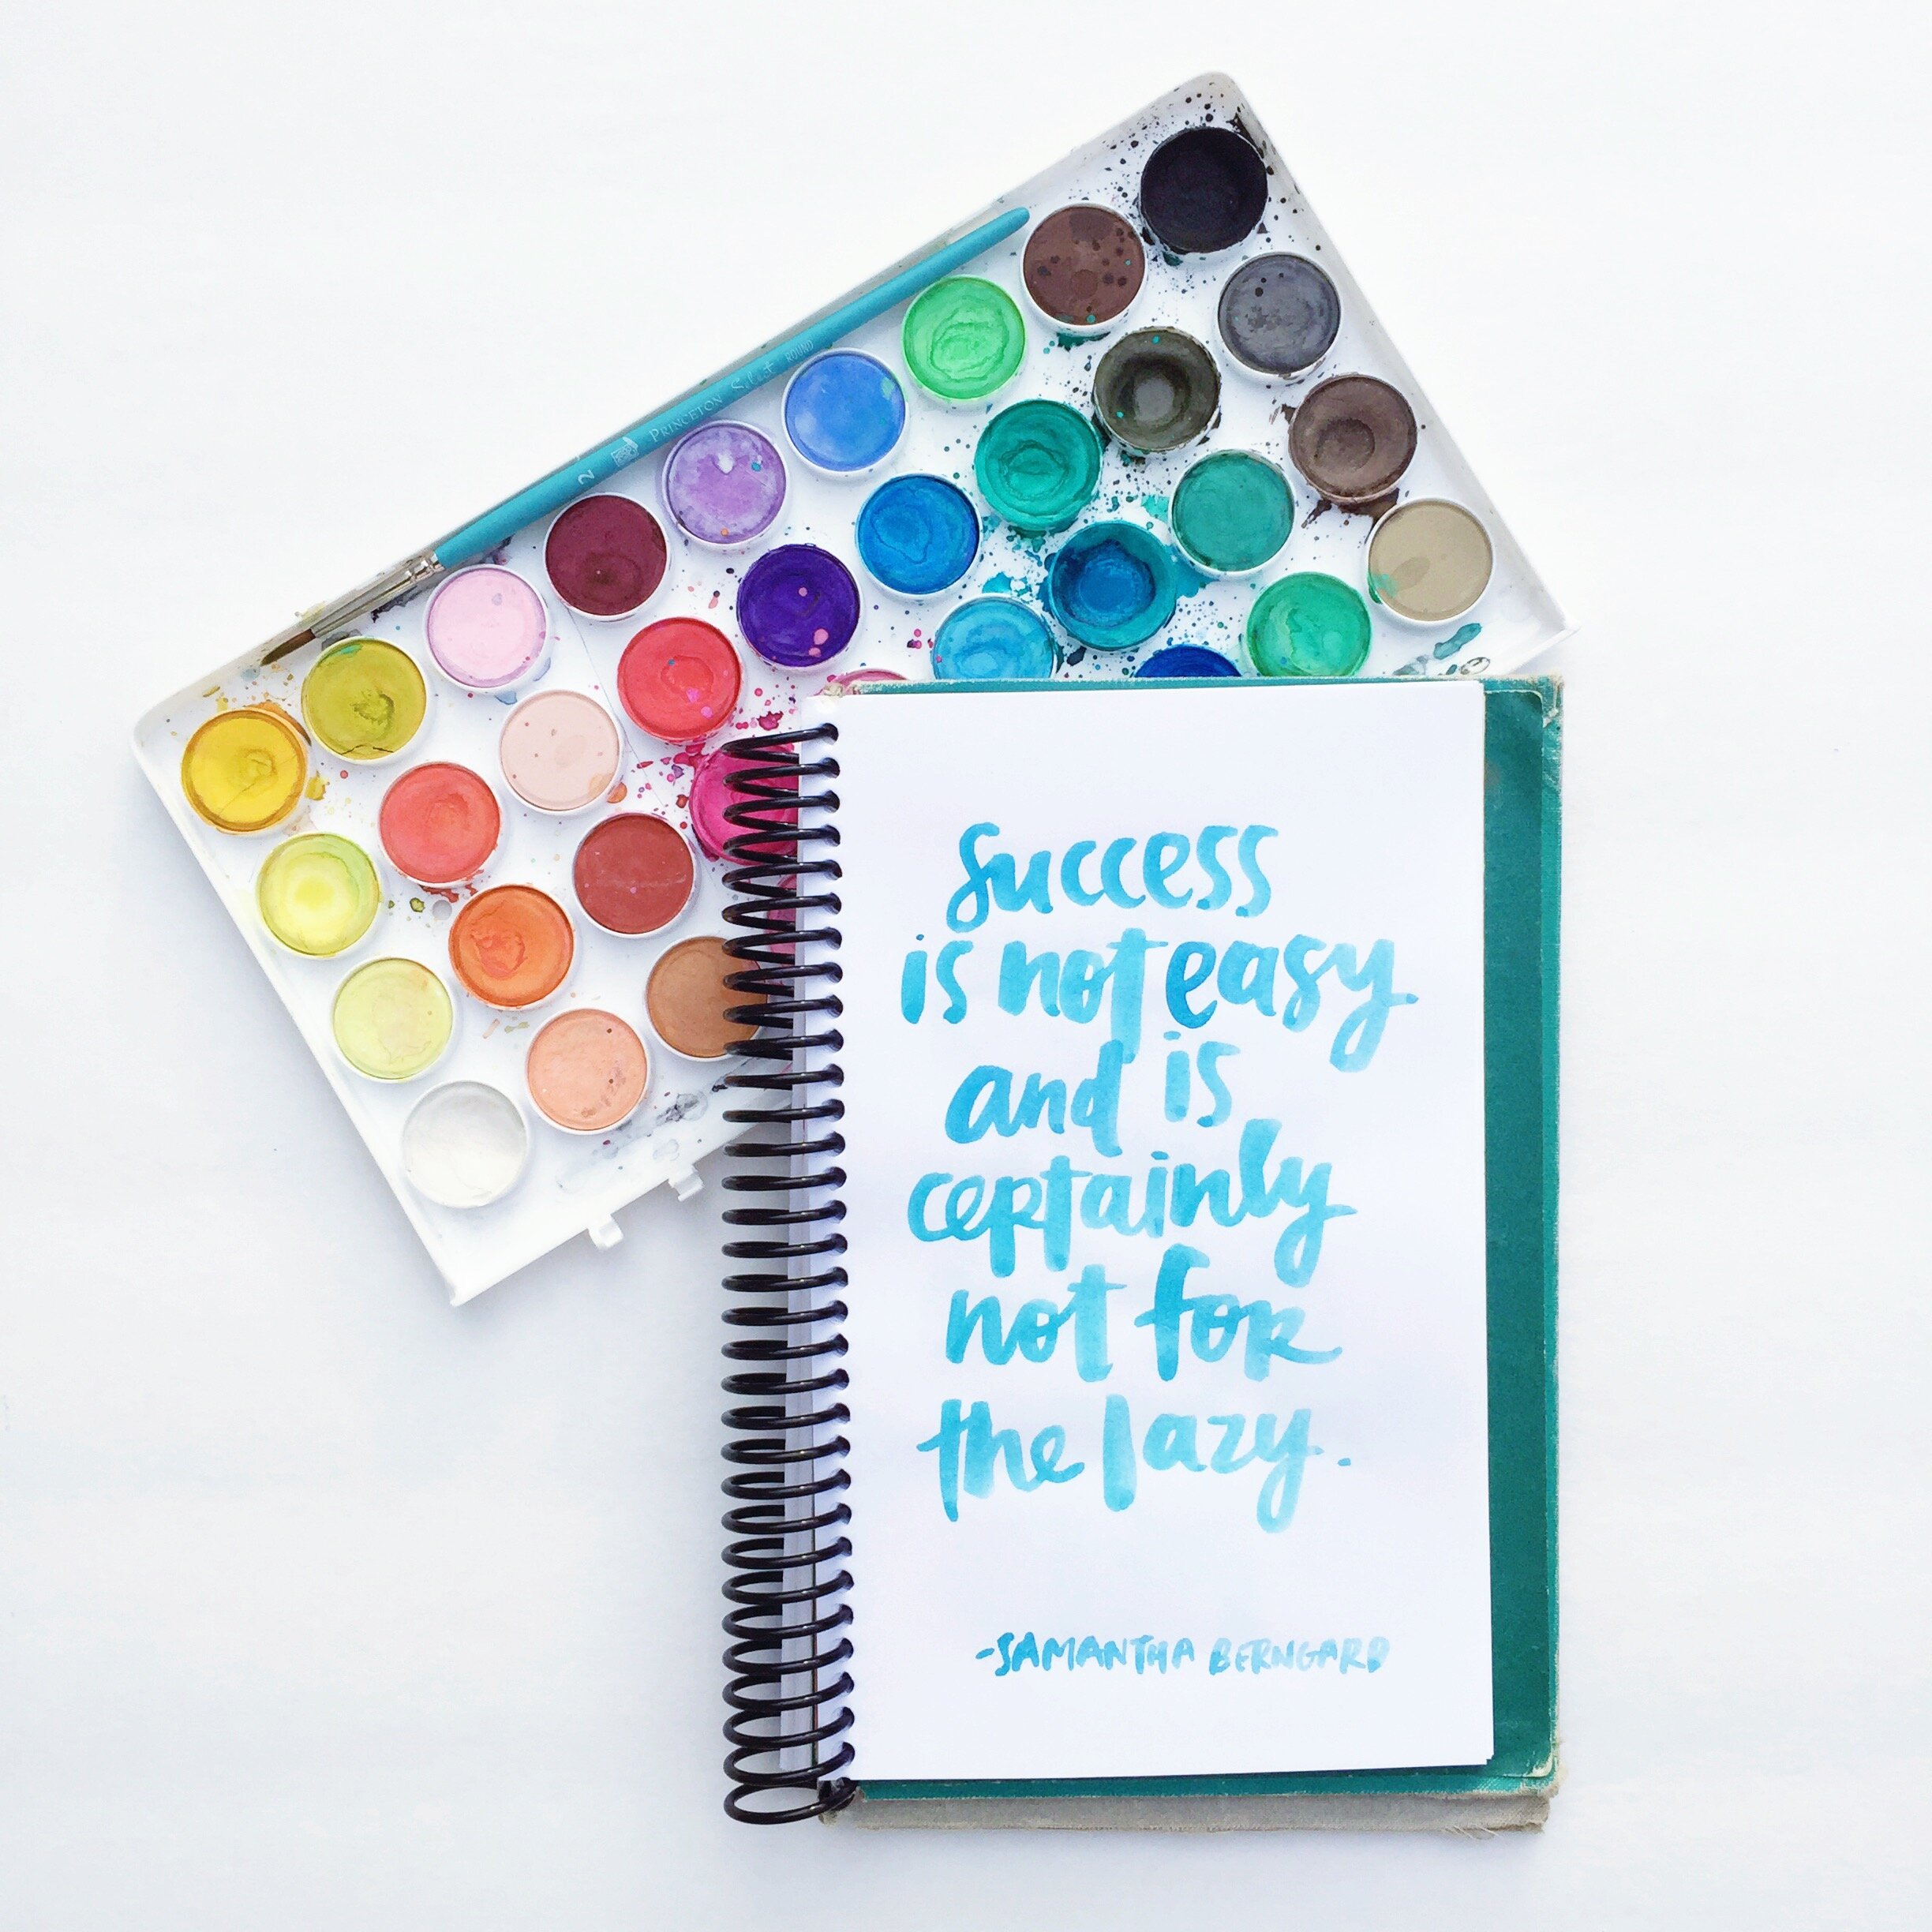 2 PRINCETON Select ROUND
success
is not easy
and is
certainly
not for
the lazy.
-SAMANTHA BERNGARD